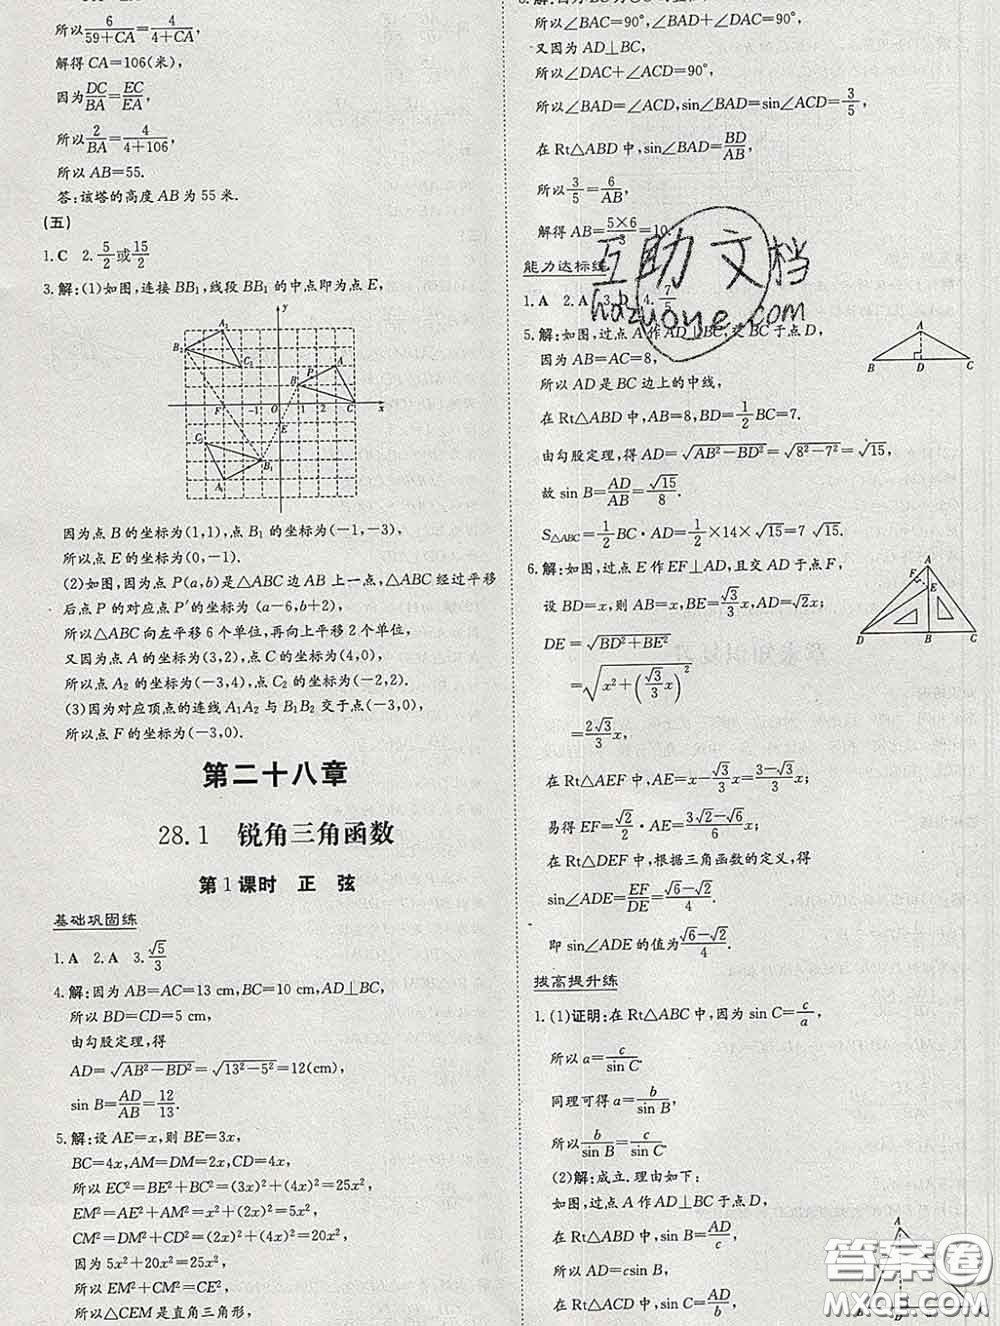 所以6/(59+CA)=4/(4+CA),
解得 CA=106(米),
因为DC/BA=EC/EA,
所以2/BA=4/(4+106),
所以 AB=55.
答:该塔的高度 AB 为 55 米.
(五)
1.C 2.5/2或15/2
3.解:(1)如图,连接 BB₁,线段 BB₁ 的中点即为点 E,
因为点 B 的坐标为(1,1),点 B₁ 的坐标为(-1,-3),
所以点 E 的坐标为(0,-1).
(2)如图,因为点 P(a,b)是△ABC 边 AB 上一点,△ABC 经过平移
后点 P 的对应点 P′的坐标为 (a-6,b+2),
所以△ABC 向左平移 6 个单位,再向上平移 2 个单位,
又因为点 A 的坐标为(3,2),点 C 的坐标为(4,0),
所以点 A₂ 的坐标为(-3,4),点 C₂ 的坐标为(-2,2).
(3)因为对应顶点的连线 A₁A₂ 与 B₁B₂ 交于点(-3,0),
所以点 F 的坐标为(-3,0).
第二十八章
28.1 锐角三角函数
第 1 课时 正 弦
基础巩固练
1.A 2.A 3.√5/3
4.解:因为 AB=AC=13 cm,BC=10 cm,AD⊥BC,
所以 BD=CD=5 cm,
由勾股定理,得
AD=√(AB²-BD²)=√(13²-5²)=12(cm),
sin B=AD/AB=12/13.
5.解:设 AE=x,则 BE=3x,
BC=4x,AM=DM=2x,CD=4x,
所以 EC²=BE²+BC²=(3x)²+(4x)²=25x²,
EM²=AE²+AM²=x²+(2x)²=5x²,
CM²=DM²+CD²=(2x)²+(4x)²=20x²,
因为 5x²+20x²=25x²,
所以 EM²+CM²=CE²,
所以△CEM 是直角三角形,
所以∠BAC=90°,∠BAD+∠DAC=90°,
又因为 AD⊥BC,
所以∠DAC+∠ACD=90°,
所以∠BAD=∠ACD,sin∠BAD=sin∠ACD=3/5,
在 Rt△ABD 中,sin∠BAD=BD/AB,
所以3/5=6/AB,
解得 AB=(5×6)/3=10.
能力达标练
1.A 2.A 3.D 4.7/5
5.解:如图,过点 A 作 AD⊥BC,交 BC 于点 D,
因为 AB=AC=8,
所以 AD 是 BC 边上的中线,
在 Rt△ABD 中,AB=8,BD=1/2BC=7.
由勾股定理,得 AD=√(AB²-BD²)=√(8²-7²)=√15,
故 sin B=AD/AB=√15/8.
S△ABC=1/2BC·AD=1/2×14×√15=7√15.
6.解:如图,过点 E 作 EF⊥AD,且交 AD 于点 F,
设 BD=x,则 AB=x,BE=√3/3x,AD=√2x;
DE=√(BD²+BE²)
=√(x²+(√3/3x)²)
=2√3/3x,
在 Rt△AEF 中,AE=x-√3/3x=(3-√3)/3x,
易得 EF=√2/2·AE=(3√2-√6)/6x,
在 Rt△DEF 中,根据三角函数的定义,得
sin∠ADE=EF/DE=(√6-√2)/4.
即 sin∠ADE 的值为(√6-√2)/4.
拔高提升练
1.(1)证明:在 Rt△ABC 中,因为 sin C=c/a,
所以 a=c/sin C.
同理可得 a=b/sin B,
所以b/sin B=c/sin C.
(2)解:成立.理由如下:
如图,过点 A 作 AD⊥BC 于点 D,
在 Rt△ABD 中,sin B=AD/c,
所以 AD=csin B,
在 Rt△ACD 中,sin C=AD/b,
互助文档
hdzuoye.com
答案圈
MXQE.COM